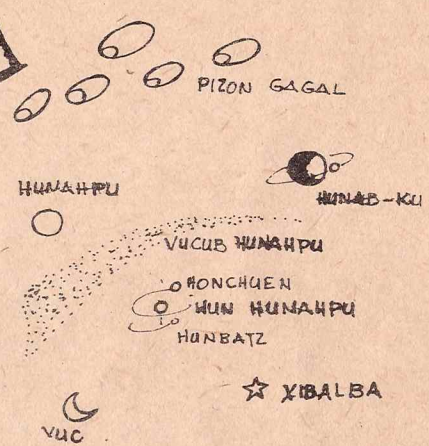 PIZON GAGAL
HUNAHPU
HUNAB-KU
VUCUB HUNAHPU
HONCHUEN
HUN HUNAHPU
HUNBATZ
XIBALBA
VUC